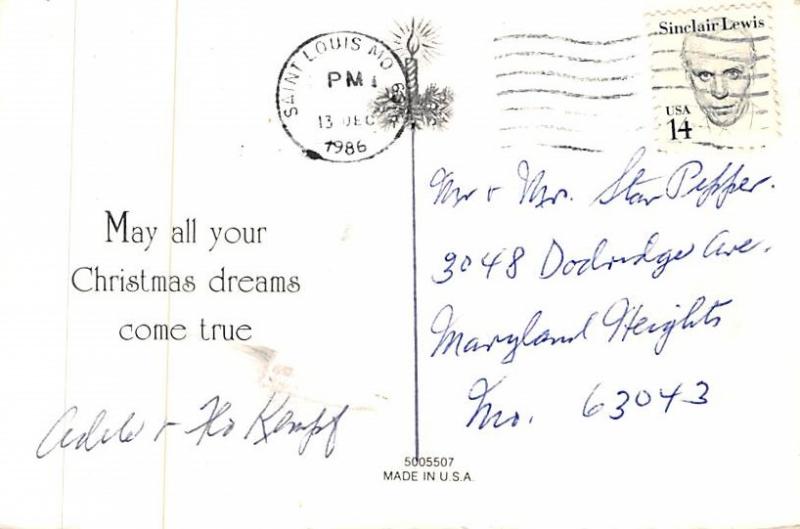 SAINT LOUIS MO
PM
13 DEC
1986
Sinclair Lewis
USA
14
Mr + Mrs. Stan Pepper.
3048 Dodridge Ave.
Maryland Heights
Mo. 63043
May all your
Christmas dreams
come true
Adele + Flo Kempf
5005507
MADE IN U.S.A.